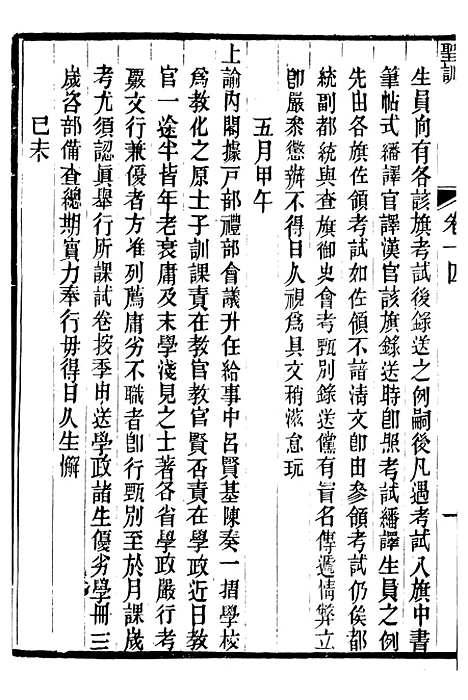 聖訓
卷一四
一
生員向有各該旗考試後錄送之例嗣後凡遇考試八旗中書
筆帖式繙譯官譯漢官該旗錄送時卽照考試繙譯生員之例
先由各旗佐領考試如佐領不諳淸文卽由參領考試仍俟都
統副都統與查旗御史會考甄別錄送儻有冒名傳遞情弊立
卽嚴叅懲辦不得日久視爲具文稍滋怠玩
五月甲午
上諭內閣據戶部禮部會議升任給事中呂賢基陳奏一摺學校
爲敎化之原士子訓課責在敎官敎官賢否責在學政近日敎
官一途半皆年老衰庸及末學淺見之士著各省學政嚴行考
覈文行兼優者方准列薦庸劣不職者卽行甄別至於月課歲
考尤須認眞舉行所課試卷按季申送學政諸生優劣學冊三
歲咨部備查總期實力奉行毋得日久生懈
己未